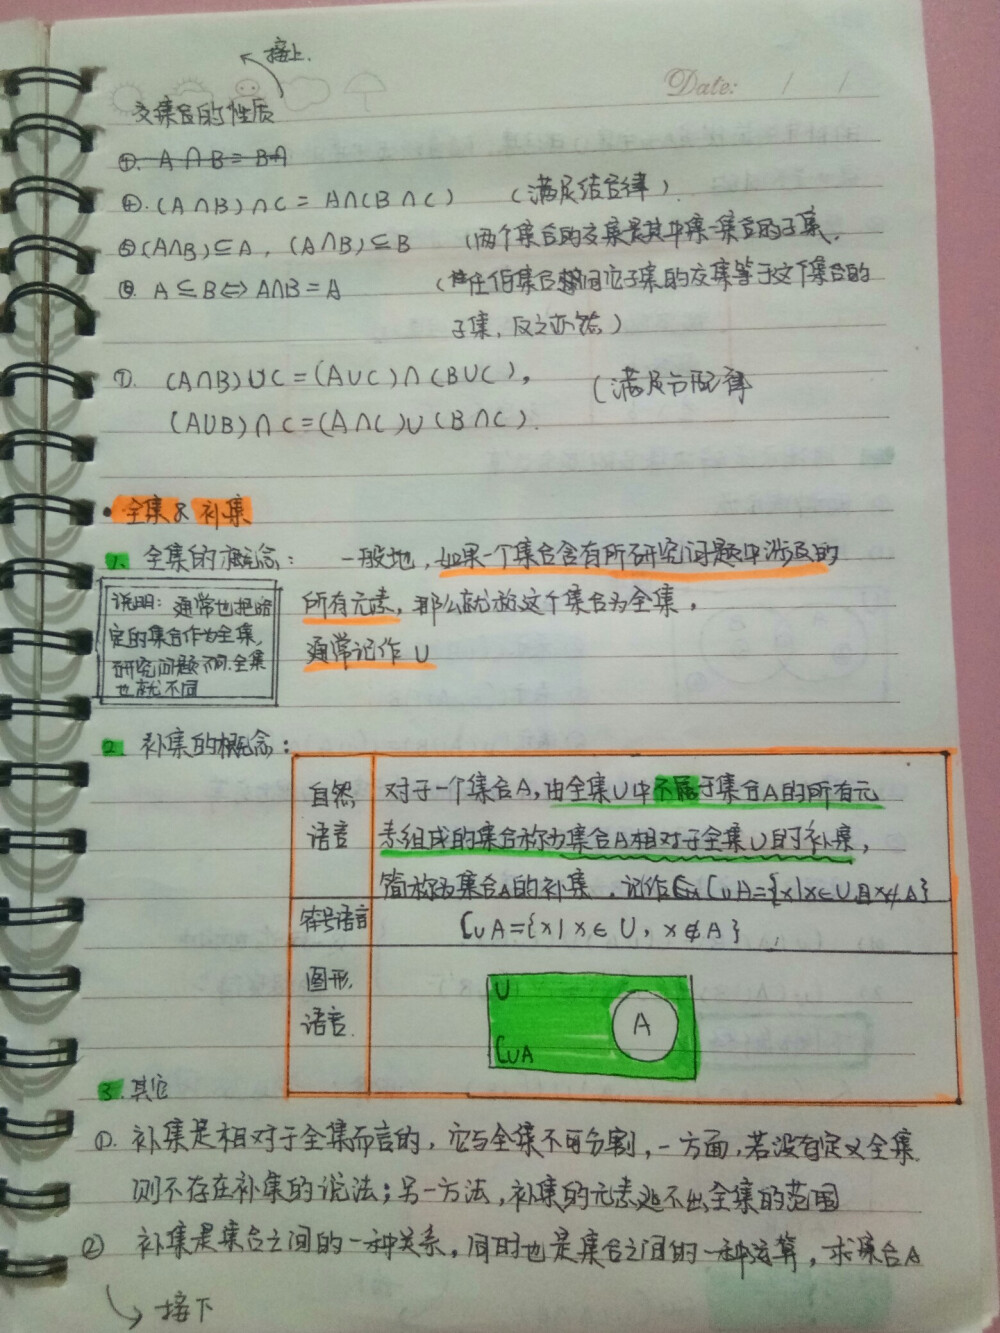 接上.
Date: / /
交集合的性质
①. A∩B=B∩
④. (A∩B)∩C = A∩(B∩C) (满足结合律)
⑤(A∩B)⊆A, (A∩B)⊆B (两个集合的交集是其中集一集合的子集,
⑥. A⊆B⇔A∩B=A (任何集合它子集的交集等于这个集合的
子集, 反之亦然)
⑦. (A∩B)∪C=(A∪C)∩(B∪C), (满足分配律
(A∪B)∩C=(A∩C)∪(B∩C).
• 全集&补集
1. 全集的概念: 一般地, 如果一个集合含有所研究问题中涉及的
所有元素, 那么就称这个集合为全集,
通常记作 U
说明: 通常也把给
定的集合作为全集,
研究问题不同,全集
也就不同
2. 补集的概念:
自然
语言
对于一个集合A, 由全集U中不属于集合A的所有元
素组成的集合称为集合A相对于全集U的补集,
简称为集合A的补集, 记作 ∁UA={x|x∈U,且x∉A}
符号语言 ∁UA={x|x∈U, x∉A}
图形
语言.
U
A
∁UA
3. 其它
①. 补集是相对于全集而言的, 它与全集不可分割, 一方面, 若没有定义全集
则不存在补集的说法; 另一方法, 补集的元素逃不出全集的范围
② 补集是集合之间的一种关系, 同时也是集合之间的一种运算, 求集合A
接下